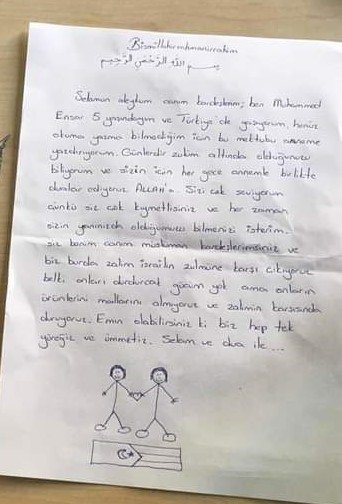 Bismillahirrahmanirrahim
بسم الله الرحمن الرحيم
Selamun aleykum canım kardeşlerim; ben Muhammed
Ensar 5 yaşındayım ve Türkiye'de yaşıyorum, henüz
okuma yazma bilmediğim için bu mektubu anneme
yazdırıyorum. Günlerdir zulüm altında olduğunuzu
biliyorum ve sizin için her gece annemle birlikte
dualar ediyoruz ALLAH'a. Sizi çok seviyorum
çünkü siz çok kıymetlisiniz ve her zaman
sizin yanınızda olduğumuzu bilmenizi isterim.
siz benim canım müslüman kardeşlerimsiniz ve
biz burda zalim israilin zulmüne karşı çıkıyoruz
belki onları durduracak gücüm yok ama onların
ürünlerini mallarını almıyoruz ve zalimin karşısında
duruyoruz. Emin olabilirsiniz ki biz hep tek
yüreğiz ve ümmetiz. Selam ve dua ile...